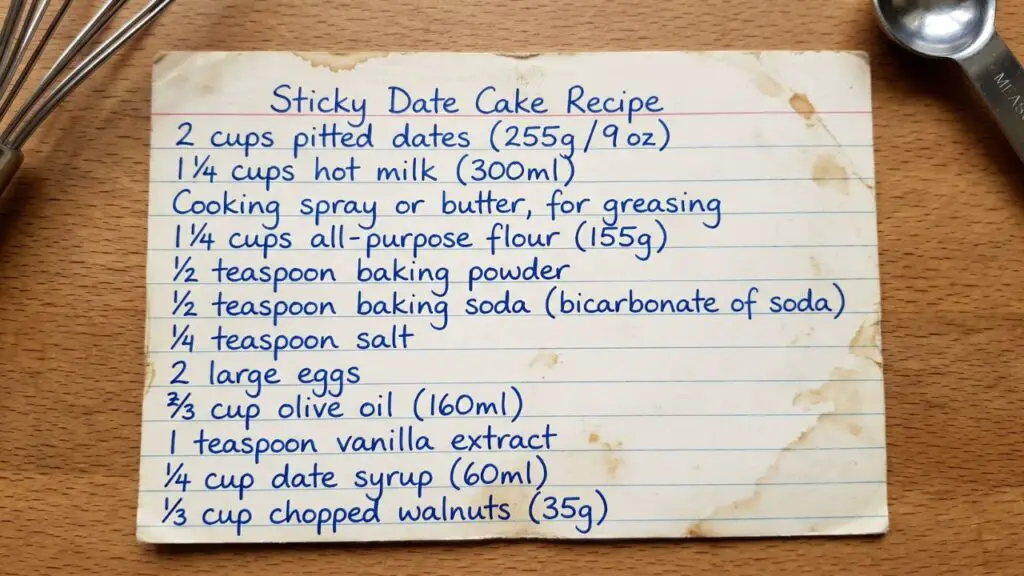 Sticky Date Cake Recipe
2 cups pitted dates (255g/9 oz)
1 ¼ cups hot milk (300ml)
Cooking spray or butter, for greasing
1 ¼ cups all-purpose flour (155g)
½ teaspoon baking powder
½ teaspoon baking soda (bicarbonate of soda)
¼ teaspoon salt
2 large eggs
⅔ cup olive oil (160ml)
1 teaspoon vanilla extract
¼ cup date syrup (60ml)
⅓ cup chopped walnuts (35g)